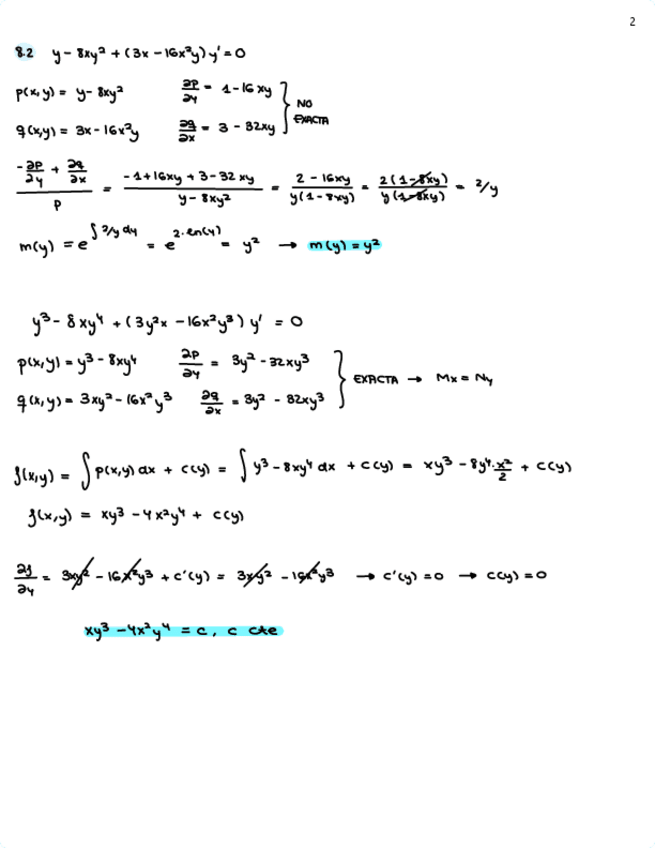 2
8.2 y - 8xy² + (3x - 16x²y) y' = 0
p(x,y) = y - 8xy² ∂p/∂y = 1 - 16xy } NO EXACTA
q(x,y) = 3x - 16x²y ∂q/∂x = 3 - 32xy
(-∂p/∂y + ∂q/∂x)/p = (-1 + 16xy + 3 - 32xy)/(y - 8xy²) = (2 - 16xy)/(y(1 - 8xy)) = 2(1 - 8xy)/(y(1 - 8xy)) = 2/y
m(y) = e^∫2/y dy = e^2·ln(y) = y² → m(y) = y²
y³ - 8xy⁴ + (3y²x - 16x²y³) y' = 0
p(x,y) = y³ - 8xy⁴ ∂p/∂y = 3y² - 32xy³ } EXACTA → Mx = Ny
q(x,y) = 3xy² - 16x²y³ ∂q/∂x = 3y² - 32xy³
f(x,y) = ∫p(x,y) dx + c(y) = ∫y³ - 8xy⁴ dx + c(y) = xy³ - 8y⁴·x²/2 + c(y)
f(x,y) = xy³ - 4x²y⁴ + c(y)
∂f/∂y = 3xy² - 16x²y³ + c'(y) = 3xy² - 16x²y³ → c'(y) = 0 → c(y) = 0
xy³ - 4x²y⁴ = c, c cte